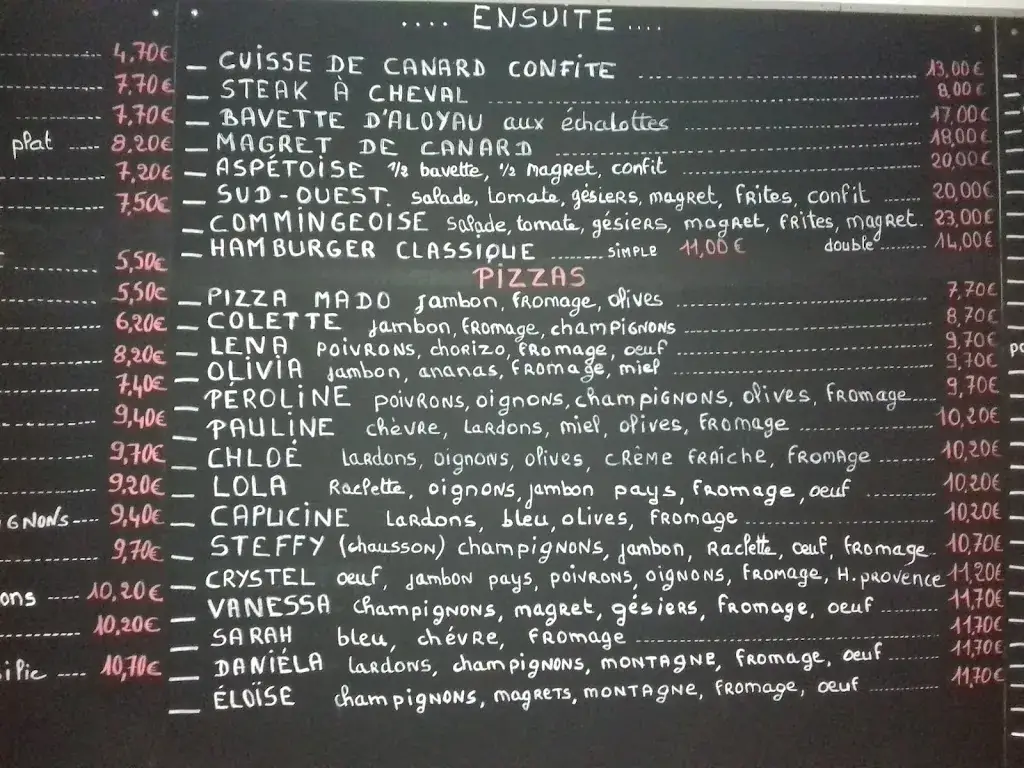 4,70€
7,70€
7,70€
plat .... 8,20€
7,20€
7,50€
5,50€
5,50€
6,20€
8,20€
7,40€
9,40€
9,70€
9,20€
GNONS ---- 9,40€
9,70€
ons ---- 10,20€
10,20€
ilic ---- 10,70€
.... ENSUITE ....
_ CUISSE DE CANARD CONFITE .... 13,00€
_ STEAK À CHEVAL .... 8,00€
_ BAVETTE D'ALOYAU aux échalottes .... 17,00€
_ MAGRET DE CANARD .... 18,00€
_ ASPÉTOISE 1/2 bavette, 1/2 magret, confit .... 20,00€
_ SUD-OUEST. salade, tomate, gésiers, magret, frites, confit .... 20,00€
_ COMMINGEOISE salade, tomate, gésiers, magret, frites, magret. 23,00€
_ HAMBURGER CLASSIQUE .... SIMPLE 11,00€ double .... 14,00€
PIZZAS
_ PIZZA MADO jambon, fromage, olives .... 7,70€
_ COLETTE jambon, fromage, champignons .... 8,70€
_ LENA poivrons, chorizo, fromage, oeuf .... 9,70€
_ OLIVIA jambon, ananas, fromage, miel .... 9,70€
_ PÉROLINE poivrons, oignons, champignons, olives, fromage.... 9,70€
_ PAULINE chèvre, lardons, miel, olives, fromage .... 10,20€
_ CHLOÉ lardons, oignons, olives, crème fraiche, fromage .... 10,20€
_ LOLA Raclette, oignons, jambon pays, fromage, oeuf .... 10,20€
_ CAPUCINE lardons, bleu, olives, fromage .... 10,20€
_ STEFFY (chausson) champignons, jambon, Raclette, oeuf, fromage.. 10,70€
_ CRYSTEL oeuf, jambon pays, poivrons, oignons, fromage, H. provence 11,20€
_ VANESSA champignons, magret, gésiers, fromage, oeuf .... 11,70€
_ SARAH bleu, chévre, fromage .... 11,70€
_ DANIÉLA lardons, champignons, montagne, fromage, oeuf .... 11,70€
_ ÉLOÏSE champignons, magrets, montagne, fromage, oeuf .... 11,70€